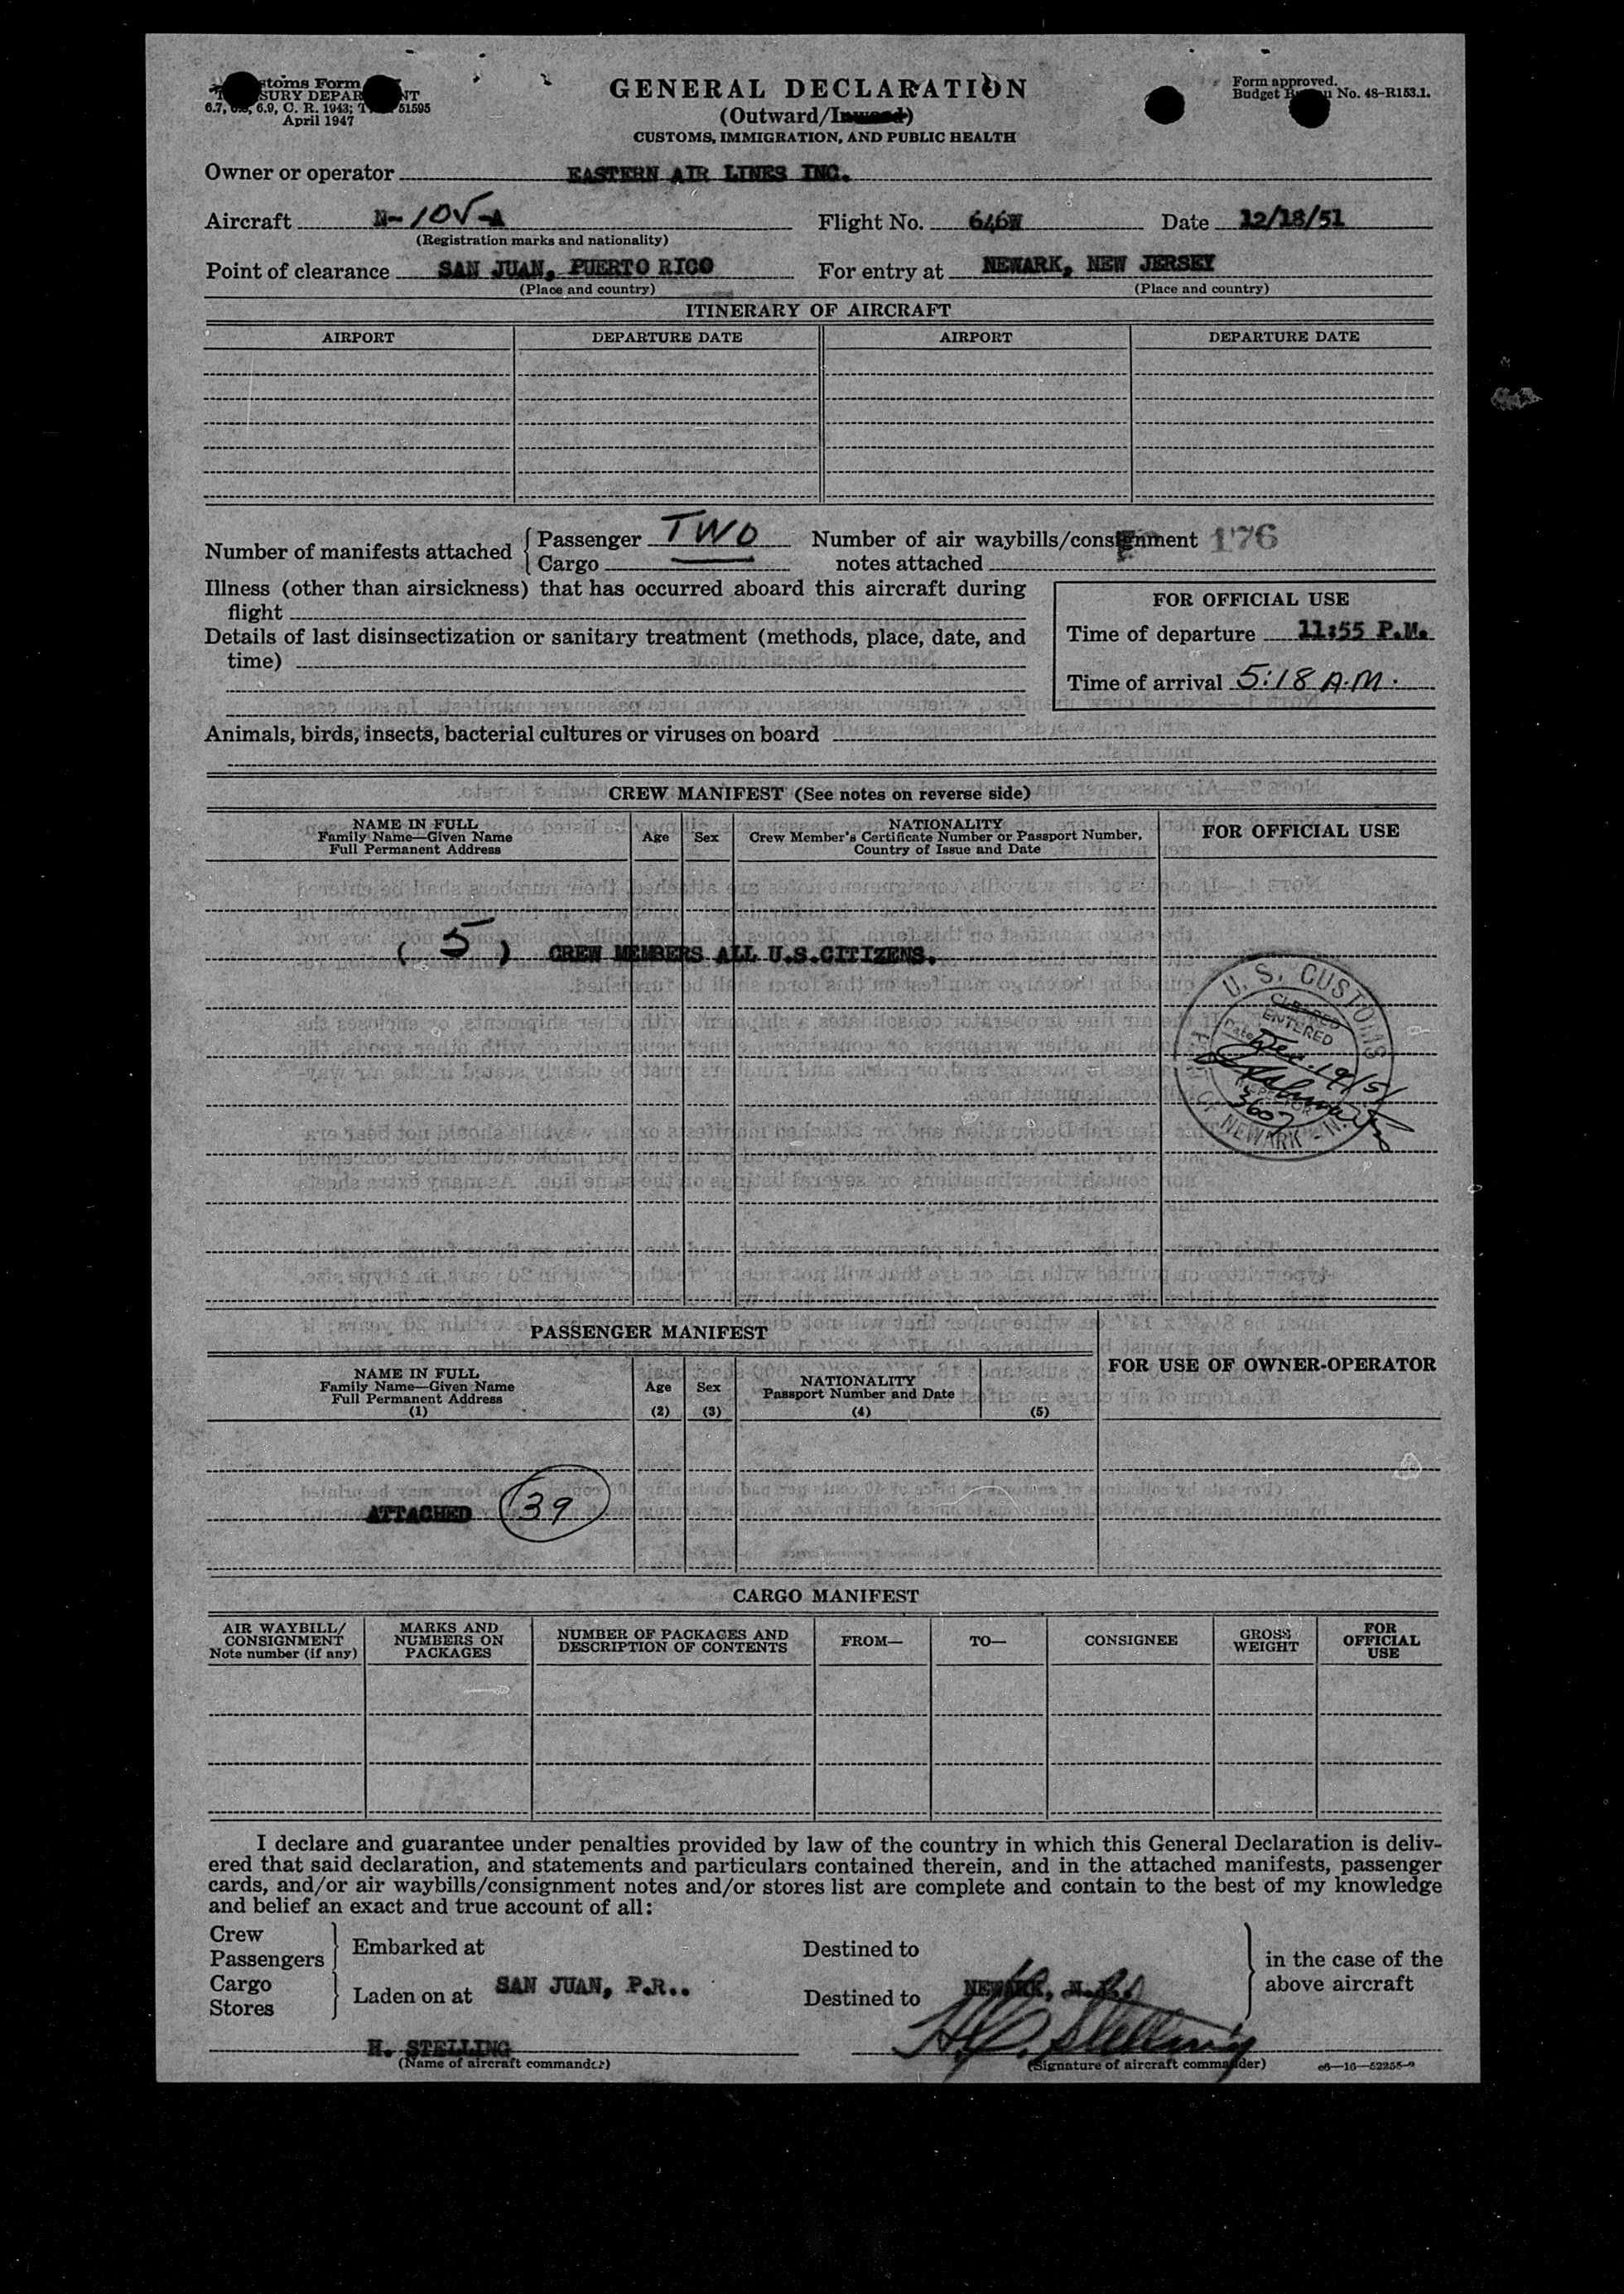 GENERAL DECLARATION
(Outward/Inward)
CUSTOMS, IMMIGRATION, AND PUBLIC HEALTH
Customs Form
TREASURY DEPARTMENT
6.7, 6.8, 6.9, C. R. 1943; T. D. 51595
April 1947
Form approved.
Budget Bureau No. 48-R153.1.
Owner or operator EASTERN AIR LINES INC.
Aircraft N-105-A Flight No. 646W Date 12/18/51
(Registration marks and nationality)
Point of clearance SAN JUAN, PUERTO RICO For entry at NEWARK, NEW JERSEY
(Place and country) (Place and country)
ITINERARY OF AIRCRAFT
AIRPORT DEPARTURE DATE AIRPORT DEPARTURE DATE
Number of manifests attached Passenger TWO Number of air waybills/consignment 176
Cargo notes attached
Illness (other than airsickness) that has occurred aboard this aircraft during
flight
Details of last disinsectization or sanitary treatment (methods, place, date, and
time)
FOR OFFICIAL USE
Time of departure 11:55 P.M.
Time of arrival 5:18 A.M.
Animals, birds, insects, bacterial cultures or viruses on board
CREW MANIFEST (See notes on reverse side)
NAME IN FULL
Family Name—Given Name
Full Permanent Address
Age
Sex
NATIONALITY
Crew Member's Certificate Number or Passport Number,
Country of Issue and Date
FOR OFFICIAL USE
( 5 ) CREW MEMBERS ALL U.S.CITIZENS.
U. S. CUSTOMS
CLEARED
ENTERED
Date Dec. 19/51
INSPECTOR
3607
NEWARK - N.J.
PASSENGER MANIFEST
NAME IN FULL
Family Name—Given Name
Full Permanent Address
(1)
Age
(2)
Sex
(3)
NATIONALITY
Passport Number and Date
(4)
(5)
FOR USE OF OWNER-OPERATOR
ATTACHED 39
CARGO MANIFEST
AIR WAYBILL/
CONSIGNMENT
Note number (if any)
MARKS AND
NUMBERS ON
PACKAGES
NUMBER OF PACKAGES AND
DESCRIPTION OF CONTENTS
FROM—
TO—
CONSIGNEE
GROSS
WEIGHT
FOR
OFFICIAL
USE
I declare and guarantee under penalties provided by law of the country in which this General Declaration is deliv-
ered that said declaration, and statements and particulars contained therein, and in the attached manifests, passenger
cards, and/or air waybills/consignment notes and/or stores list are complete and contain to the best of my knowledge
and belief an exact and true account of all:
Crew
Passengers
Embarked at
Destined to
Cargo
Stores
Laden on at SAN JUAN, P.R..
Destined to NEWARK, N.J.
in the case of the
above aircraft
H. STELLING
(Name of aircraft commander)
H.C. Stelling
(Signature of aircraft commander)
c6—16—52255-2